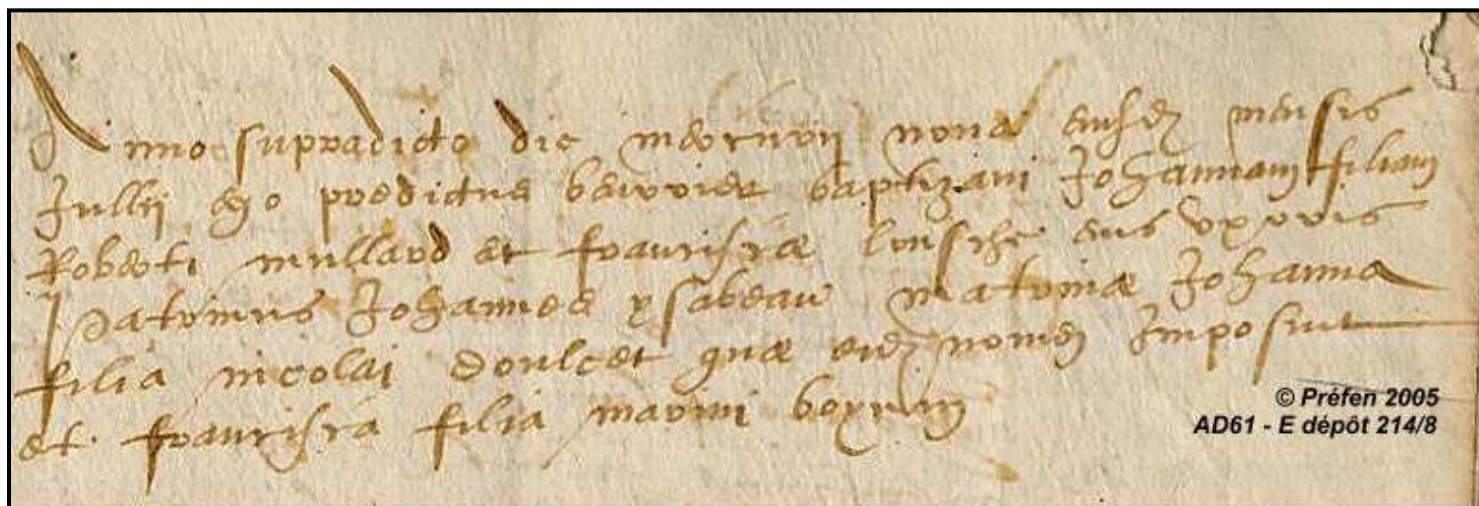 Anno supradicto die mercurij nona eiusdem mensis
Jullij ego predictus baptizavi Johannam filiam
Roberti mullard et francisca eius uxoris
patrinus Johannes ysabeau matrina Johanna
filia nicolai doulcet quae nomen Imposuit
et francisca filia marini
© Préfen 2005
AD61 - E dépôt 214/8